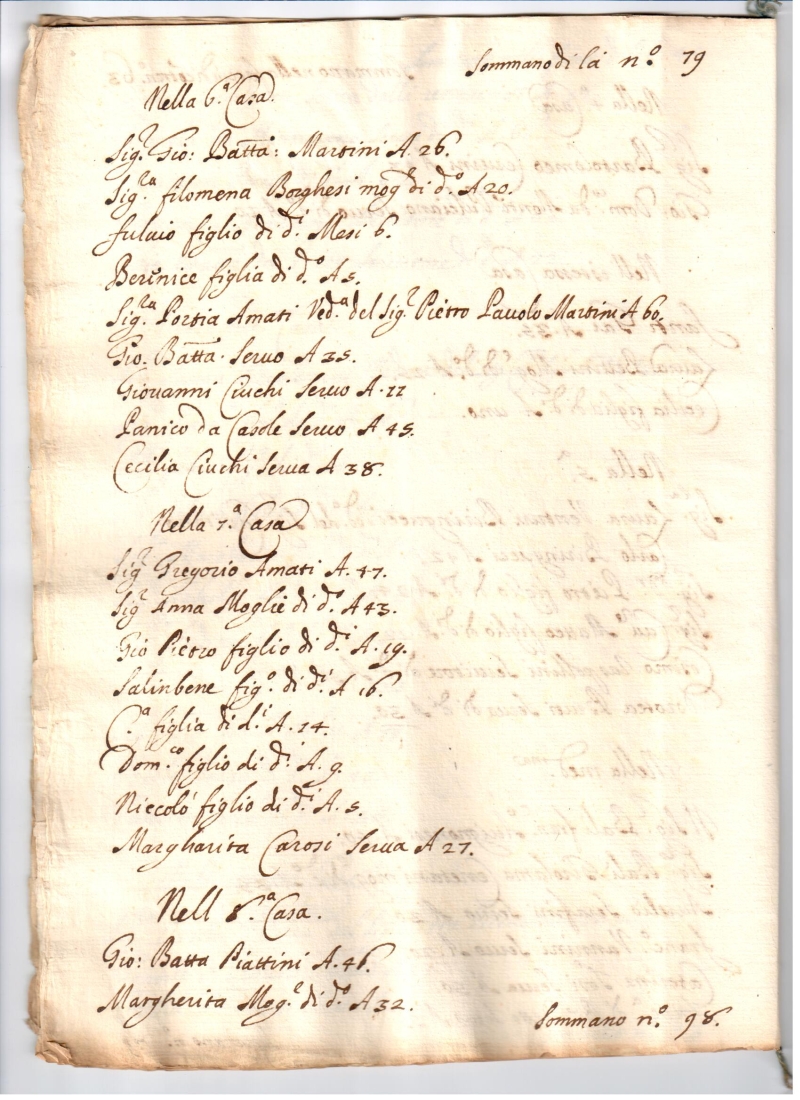 Sommano di là n.º 79
Nella 6.ª Casa.
Sig.r Gio: Batta: Martini A. 26.
Sig.ra filomena Borghesi mog.e di d.º A 20.
fuluio figlio di d.i Mesi 6.
Berinice figlia di d.º A 5.
Sig.ra Portia Amati Ved.ª del Sig.r Pietro Pauolo Martini A 60.
Gio. Batta. Seruo A 35.
Giouanni Ciuchi Seruo A. 22
Panico da Casole Seruo A 45.
Cecilia Ciuchi Serua A 38.
Nella 7.ª Casa
Sig.r Gregorio Amati A. 47.
Sig.r Anna Moglie di d.º A 43.
Gio Pietro figlio di d.i A. 19.
Salinbene fig.º di d.i A 16.
C.ª figlia di d.i A. 14.
Dom.co figlio di d.i A. 9.
Niccolò figlio di d.i A. 5.
Margharita Carosi Serua A 27.
Nell 8.ª Casa.
Gio: Batta Piattini A. 46.
Margherita Mog.e di d.º A 32.
Sommano n.º 98.